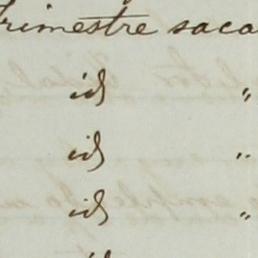 trimestre saca
id "
id "
id "
id